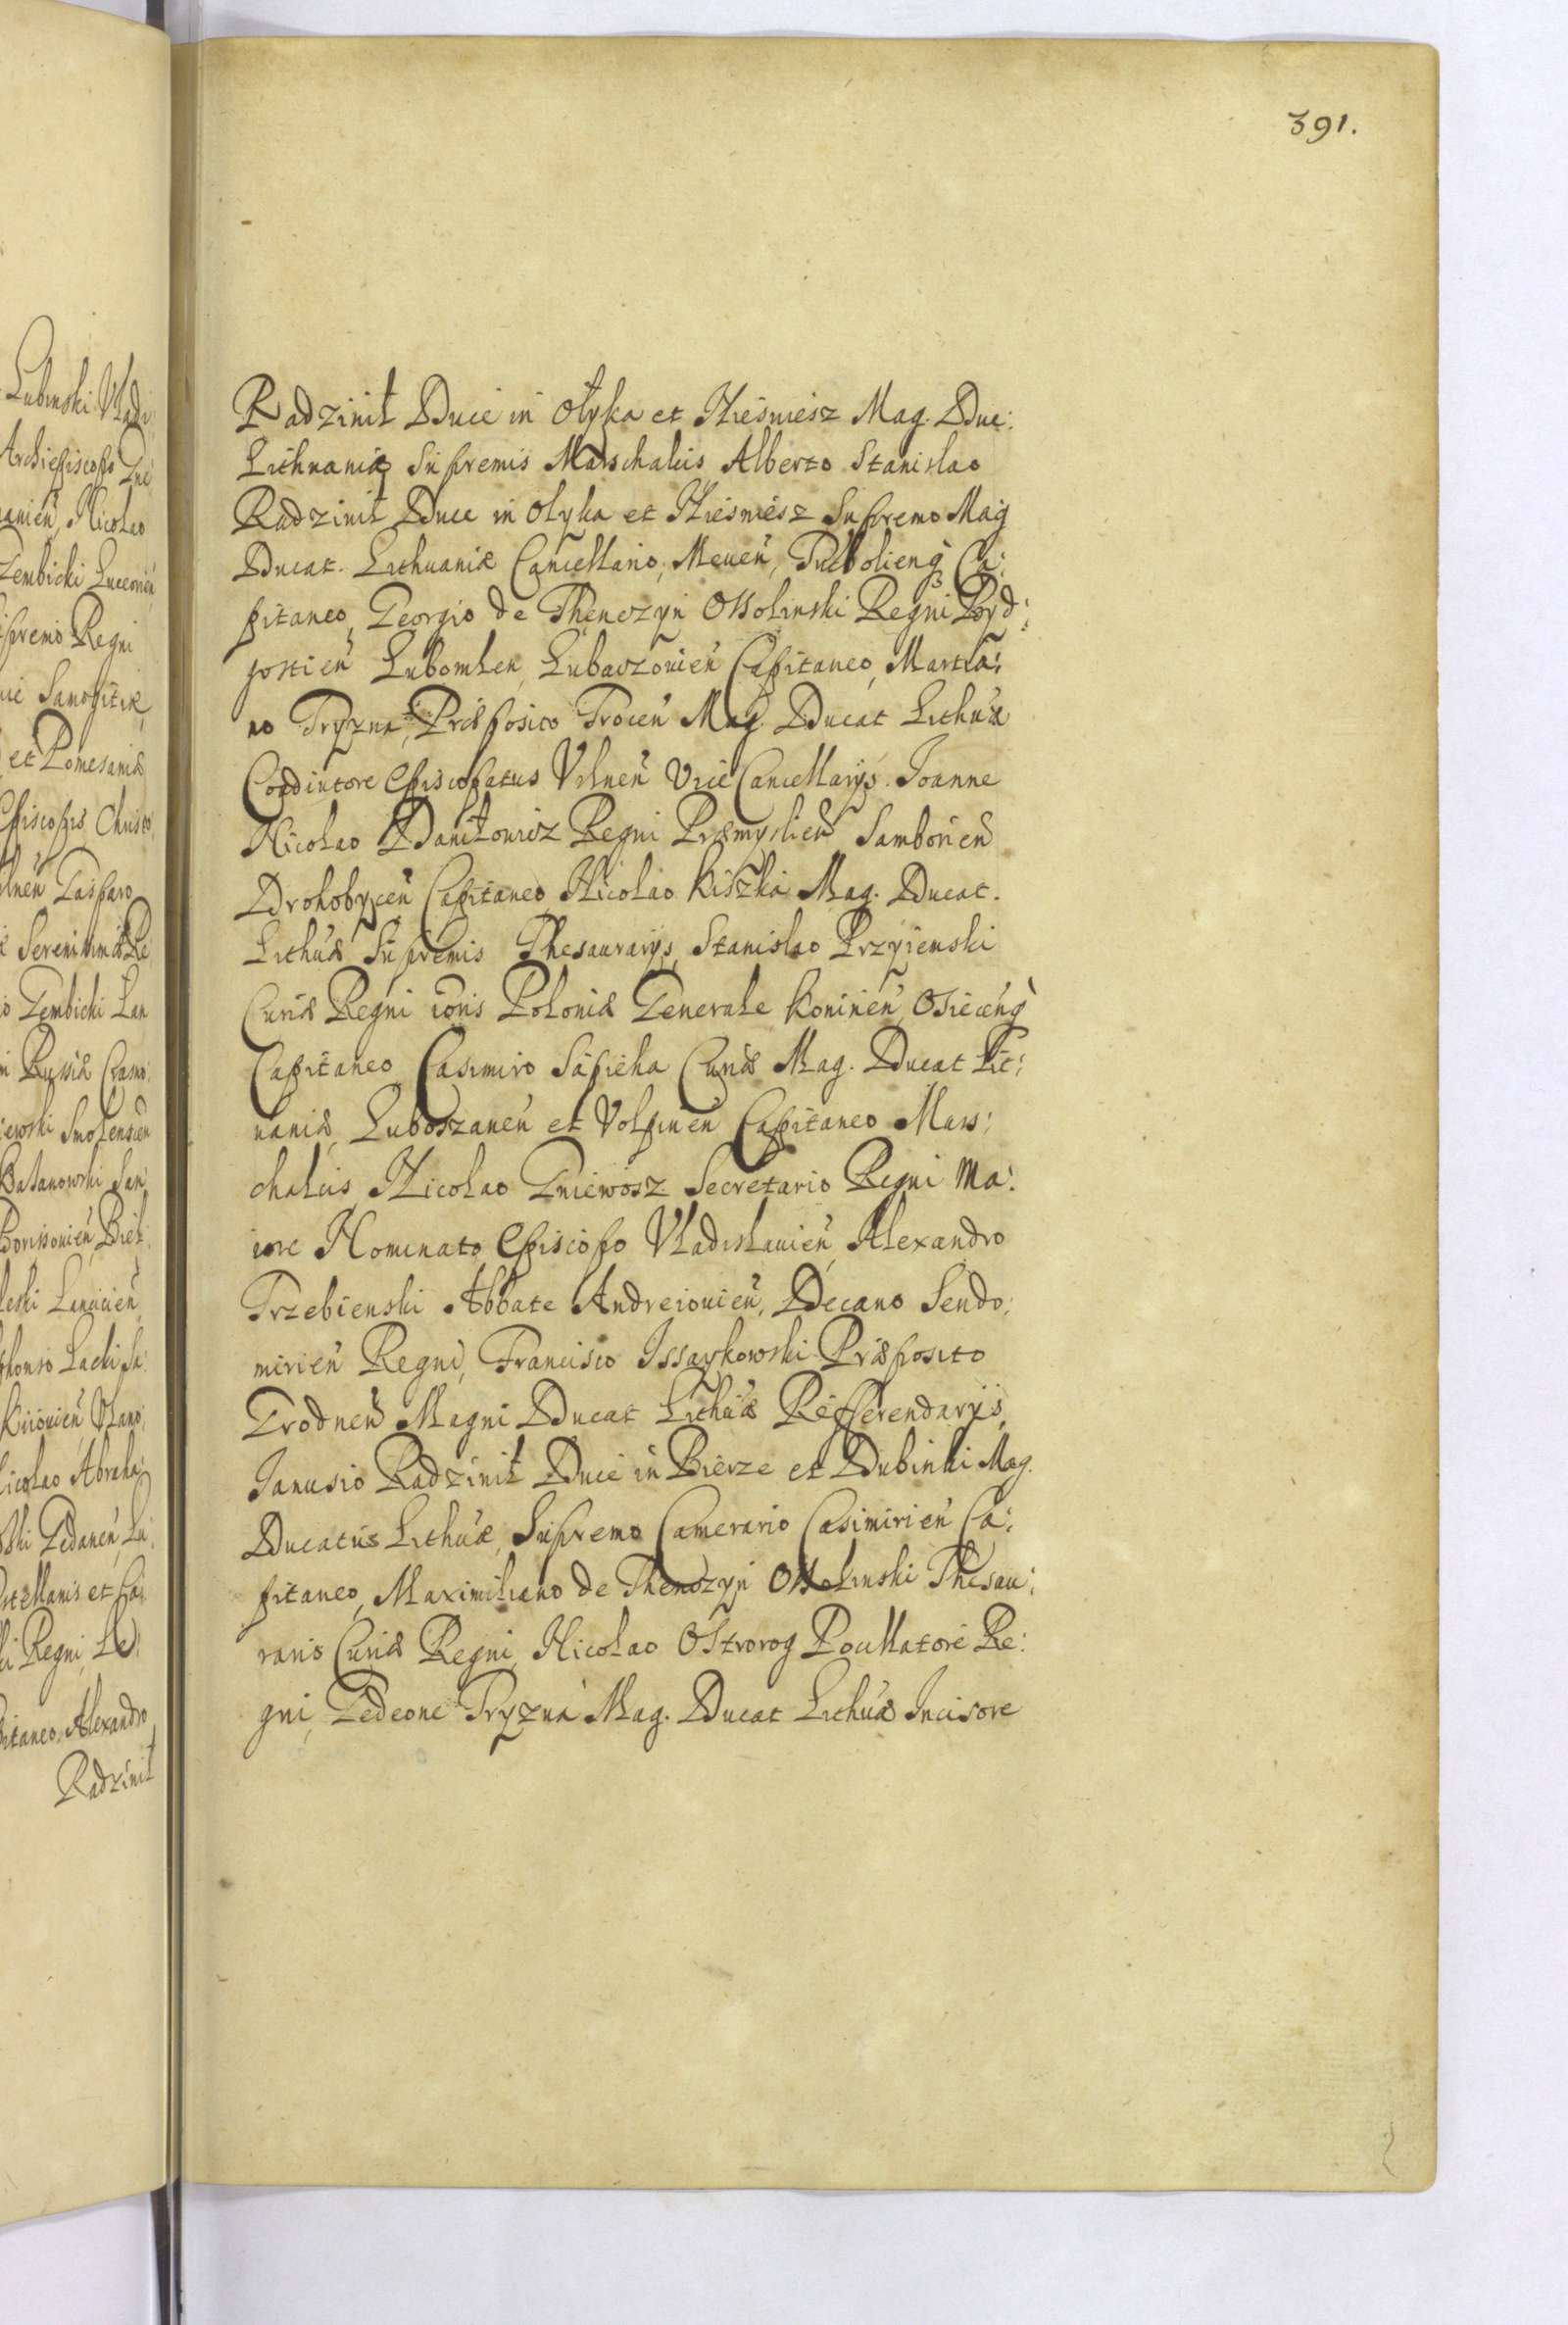 391.
Lubinski Vladi
Archiepiscopo Gne
Nicolao
Zembicki Luceorien
Supremo Regni
Samogitiæ
et Pomesaniæ
Episcopis, Christo
Gasparo
Serenissimæ Re
Gembicki Lan
Russiæ
Smolenscien
Batanowski San
Borissouien, Biel
Lancicien
Lacki Sa
Kiiouien, Vlano
Nicolao Abraha
Gedanen, Lu
Castellanis et Ca
Regni, Le
pitaneo, Alexandro
Radziwił
Radziwił Duce in Ołyka et Nieswiesz Mag. Duc:
Lithuaniæ Supremis Marschalcis Alberto Stanislao
Radziwił Duce in Olyka et Nieswiesz Supremo Mag
Ducat. Lithuaniæ Cancellario, Meuen, Tucholieng Ca:
pitaneo, Georgio de Thenczyn Ossolinski Regni Byd:
gostien Lubomlen, Lubaczouien Capitaneo, Martia:
no Tryzna, Præposito Trocen Mag. Ducat Lithuæ
Coadiutore Episcopatus Vilnen Vice Cancellarijs. Joanne
Nicolao Daniłowicz Regni Præmyslien Samborien
Drohobycen Capitaneo Nicolao Kiszka Mag. Ducat.
Lithuæ Supremis Thesaurarijs, Stanislao Przyiemski
Curiæ Regni ioris Poloniæ Generale Koninen, Osieceng
Capitaneo Casimiro Sapieha Curiæ Mag. Ducat Lit:
uaniæ, Luboszanen et Volpinen Capitaneo Mars:
chalcis, Nicolao Gniewosz Secretario Regni Ma:
iore Nominato Episcopo Vladislauien, Alexandro
Trzebienski Abbate Andreiouien, Decano Sendo:
mirien Regni, Francisco Issaykowski Præposito
Grodnen Magni Ducat Lithuæ Refferendarijs,
Janusio Radziwił Duce in Bierze et Dubinki Mag.
Ducatus Lithuæ, Supremo Camerario Casimirien Ca:
pitaneo, Maximiliano de Thenczyn Ossolinski Thesau:
rario Curiæ Regni, Nicolao Ostrorog Pocillatore Re:
gni, Gedeone Tryzna Mag. Ducat Lithuæ Incisore